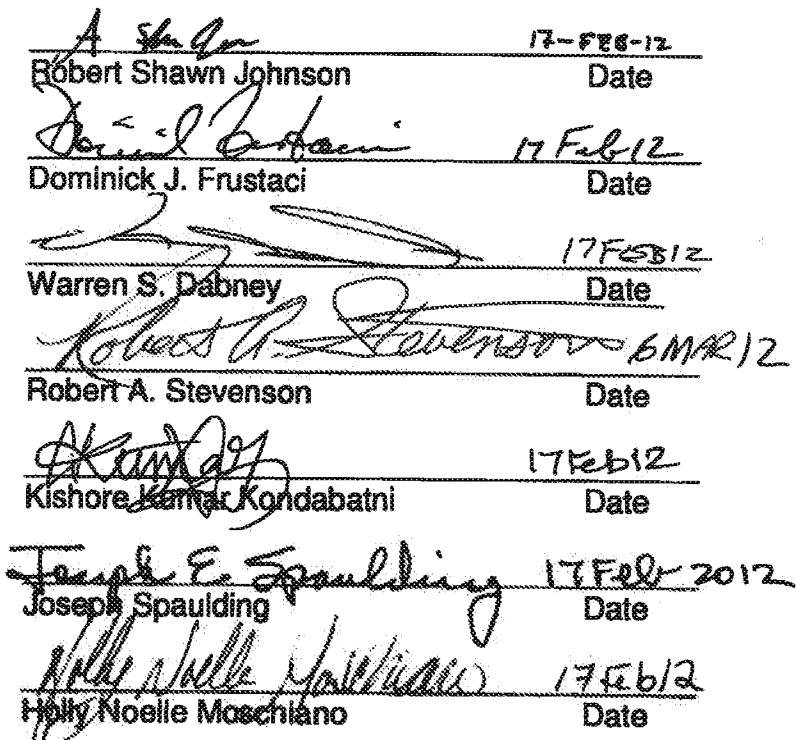 17-FEB-12
Robert Shawn Johnson Date
17 Feb 12
Dominick J. Frustaci Date
17FEB12
Warren S. Dabney Date
Robert A. Stevenson 6 MAR 12
Robert A. Stevenson Date
17Feb12
Kishore Kumar Kondabatni Date
Joseph E. Spaulding 17 Feb 2012
Joseph Spaulding Date
Holly Noelle Moschiano 17 Feb 12
Holly Noelle Moschiano Date